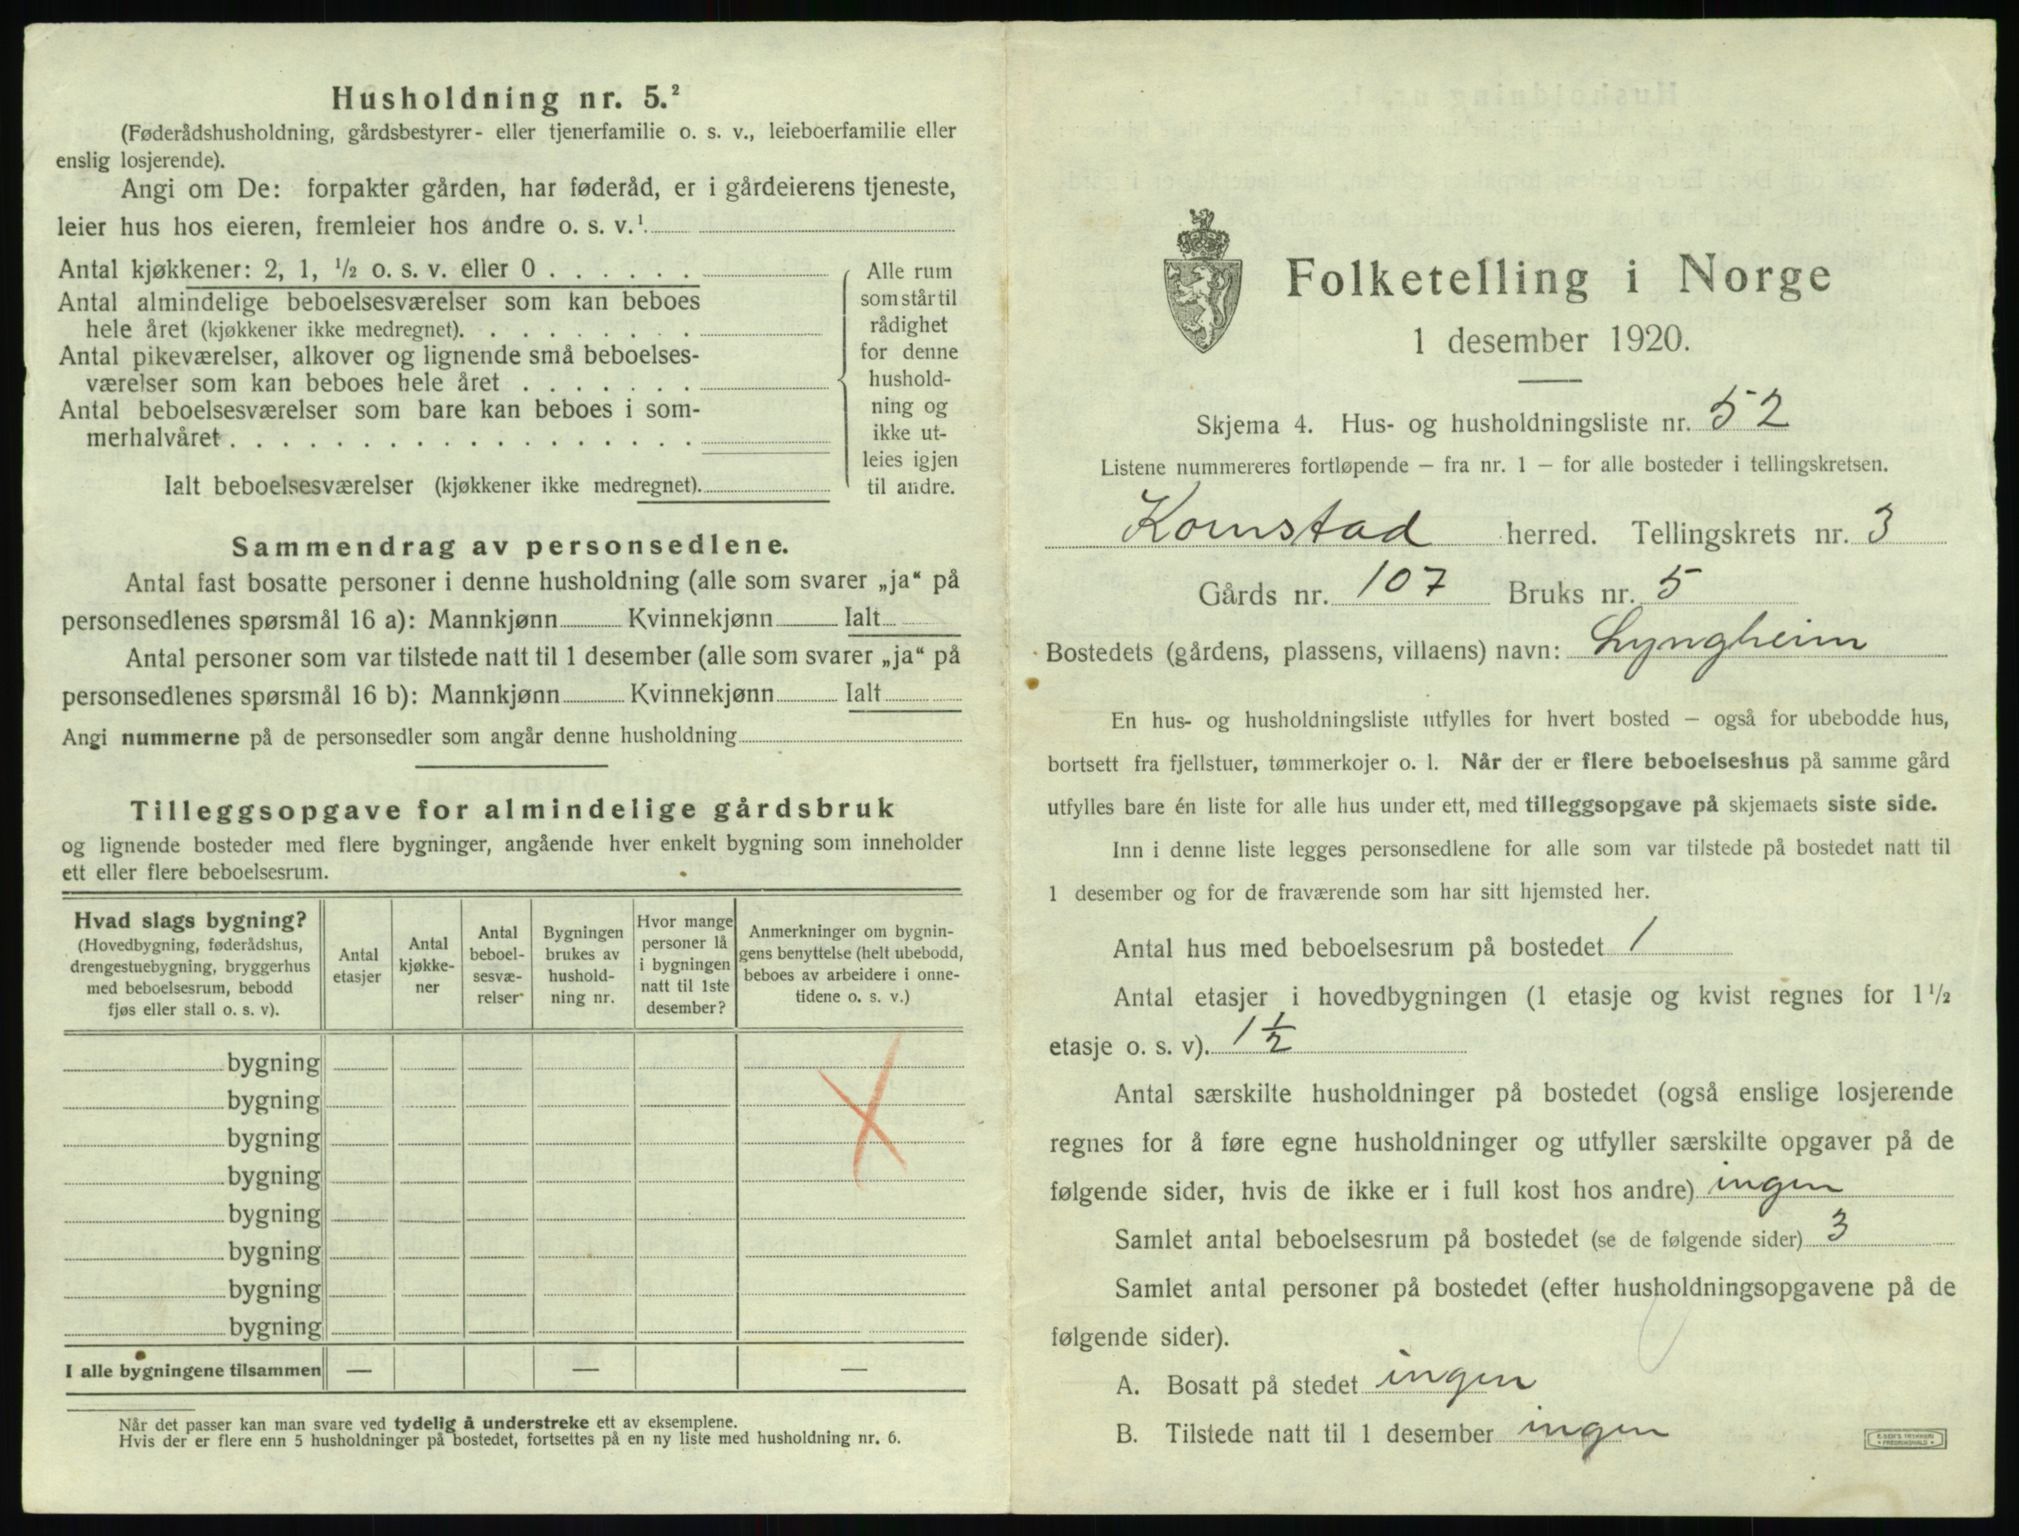 Husholdning nr. 5.²
(Føderådshusholdning, gårdsbestyrer- eller tjenerfamilie o. s. v., leieboerfamilie eller
enslig losjerende).
Angi om De: forpakter gården, har føderåd, er i gårdeierens tjeneste,
leier hus hos eieren, fremleier hos andre o. s. v.¹
Antal kjøkkener: 2, 1, ½ o. s. v. eller 0 . . . . . .
Antal almindelige beboelsesværelser som kan beboes
hele året (kjøkkener ikke medregnet). . . . . . . . .
Antal pikeværelser, alkover og lignende små beboelses-
værelser som kan beboes hele året . . . . . . .
Antal beboelsesværelser som bare kan beboes i som-
merhalvåret . . . . . . . . . . . . . . . . . .
Ialt beboelsesværelser (kjøkkener ikke medregnet).
Alle rum
som står til
rådighet
for denne
hushold-
ning og
ikke ut-
leies igjen
til andre.
Sammendrag av personsedlene.
Antal fast bosatte personer i denne husholdning (alle som svarer „ja“ på
personsedlenes spørsmål 16 a): Mannkjønn Kvinnekjønn Ialt
Antal personer som var tilstede natt til 1 desember (alle som svarer „ja“ på
personsedlenes spørsmål 16 b): Mannkjønn Kvinnekjønn Ialt
Angi nummerne på de personsedler som angår denne husholdning
Tilleggsopgave for almindelige gårdsbruk
og lignende bosteder med flere bygninger, angående hver enkelt bygning som inneholder
ett eller flere beboelsesrum.
Hvad slags bygning?
(Hovedbygning, føderådshus,
drengestuebygning, bryggerhus
med beboelsesrum, bebodd
fjøs eller stall o. s. v).
Antal
etasjer
Antal
kjøkke-
ner
Antal
beboel-
sesvæ-
relser
Bygningen
brukes av
hushold-
ning nr.
Hvor mange
personer lå
i bygningen
natt til 1ste
desember?
Anmerkninger om bygnin-
gens benyttelse (helt ubebodd,
beboes av arbeidere i onne-
tidene o. s. v.)
bygning
bygning
bygning
bygning
bygning
bygning
bygning
bygning
I alle bygningene tilsammen — — —
Når det passer kan man svare ved tydelig å understreke ett av eksemplene.
Hvis der er flere enn 5 husholdninger på bostedet, fortsettes på en ny liste med husholdning nr. 6.
Folketelling i Norge
1 desember 1920.
Skjema 4. Hus- og husholdningsliste nr. 52
Listene nummereres fortløpende – fra nr. 1 – for alle bosteder i tellingskretsen.
Kornstad herred. Tellingskrets nr. 3
Gårds nr. 107 Bruks nr. 5
Bostedets (gårdens, plassens, villaens) navn: Lyngheim
En hus- og husholdningsliste utfylles for hvert bosted – også for ubebodde hus,
bortsett fra fjellstuer, tømmerkojer o. l. Når der er flere beboelseshus på samme gård
utfylles bare én liste for alle hus under ett, med tilleggsopgave på skjemaets siste side.
Inn i denne liste legges personsedlene for alle som var tilstede på bostedet natt til
1 desember og for de fraværende som har sitt hjemsted her.
Antal hus med beboelsesrum på bostedet 1
Antal etasjer i hovedbygningen (1 etasje og kvist regnes for 1½
etasje o. s. v). 1½
Antal særskilte husholdninger på bostedet (også enslige losjerende
regnes for å føre egne husholdninger og utfyller særskilte opgaver på de
følgende sider, hvis de ikke er i full kost hos andre) ingen
Samlet antal beboelsesrum på bostedet (se de følgende sider) 3
Samlet antal personer på bostedet (efter husholdningsopgavene på de
følgende sider).
A. Bosatt på stedet ingen
B. Tilstede natt til 1 desember ingen